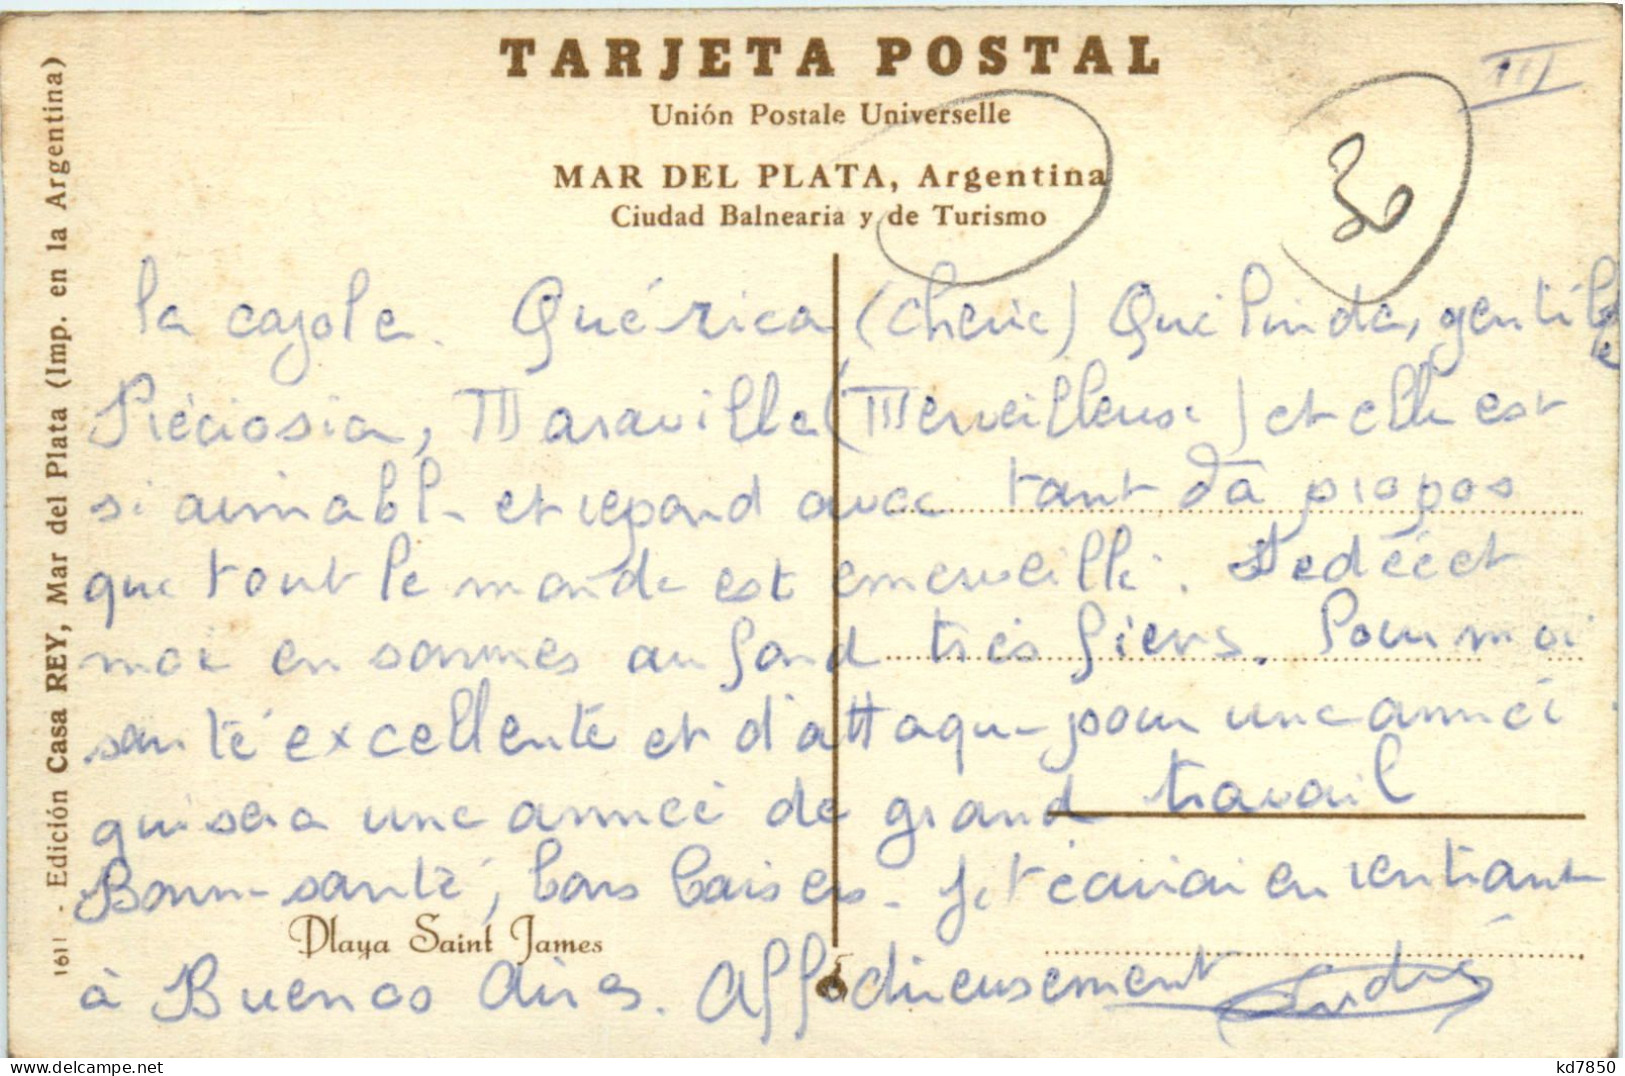 TARJETA POSTAL
Unión Postale Universelle
MAR DEL PLATA, Argentina
Ciudad Balnearia y de Turismo
III
30
la cajole. Quérica (cherie) Que linda, gentille
Préciosia, Maraville (Merveilleuse) et elle est
si aimable et repond avec tant d'à propos
que tout le monde est emerveillé. Dédée et
moi en sommes au fond très fiers. Pour moi
santé excellente et d'attaque pour une année
qui sera une année de grand travail
Bonne santé, bons baisers. Je t'écrirai en rentrant
à Buenos Aires. Affectueusement André
Playa Saint James
161 - Edición Casa REY, Mar del Plata (Imp. en la Argentina)
delcampe.net
kd7850